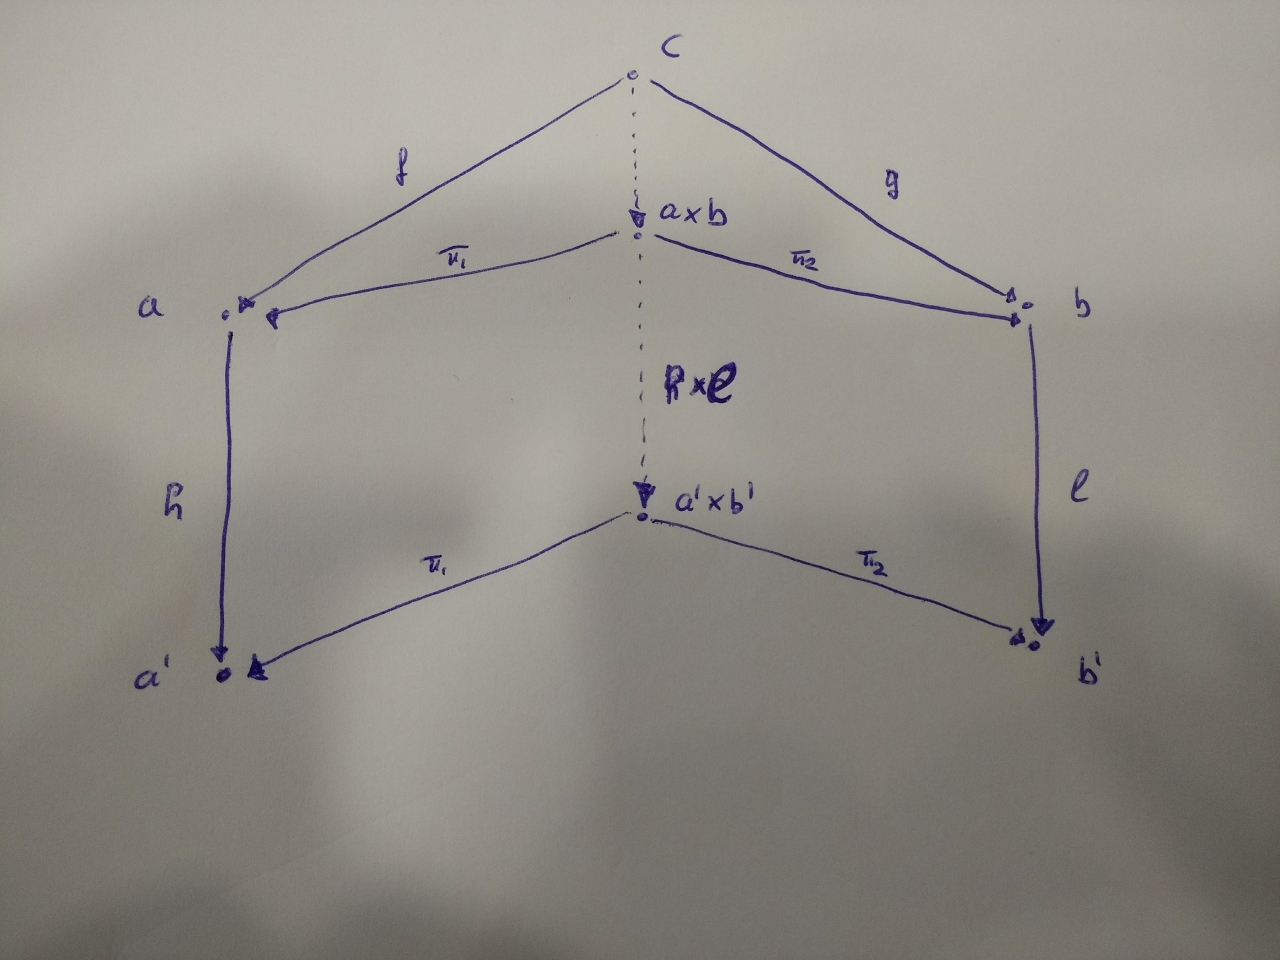 c
f
g
a×b
π₁
π₂
a
b
h×l
h
a'×b'
l
π₁
π₂
a'
b'